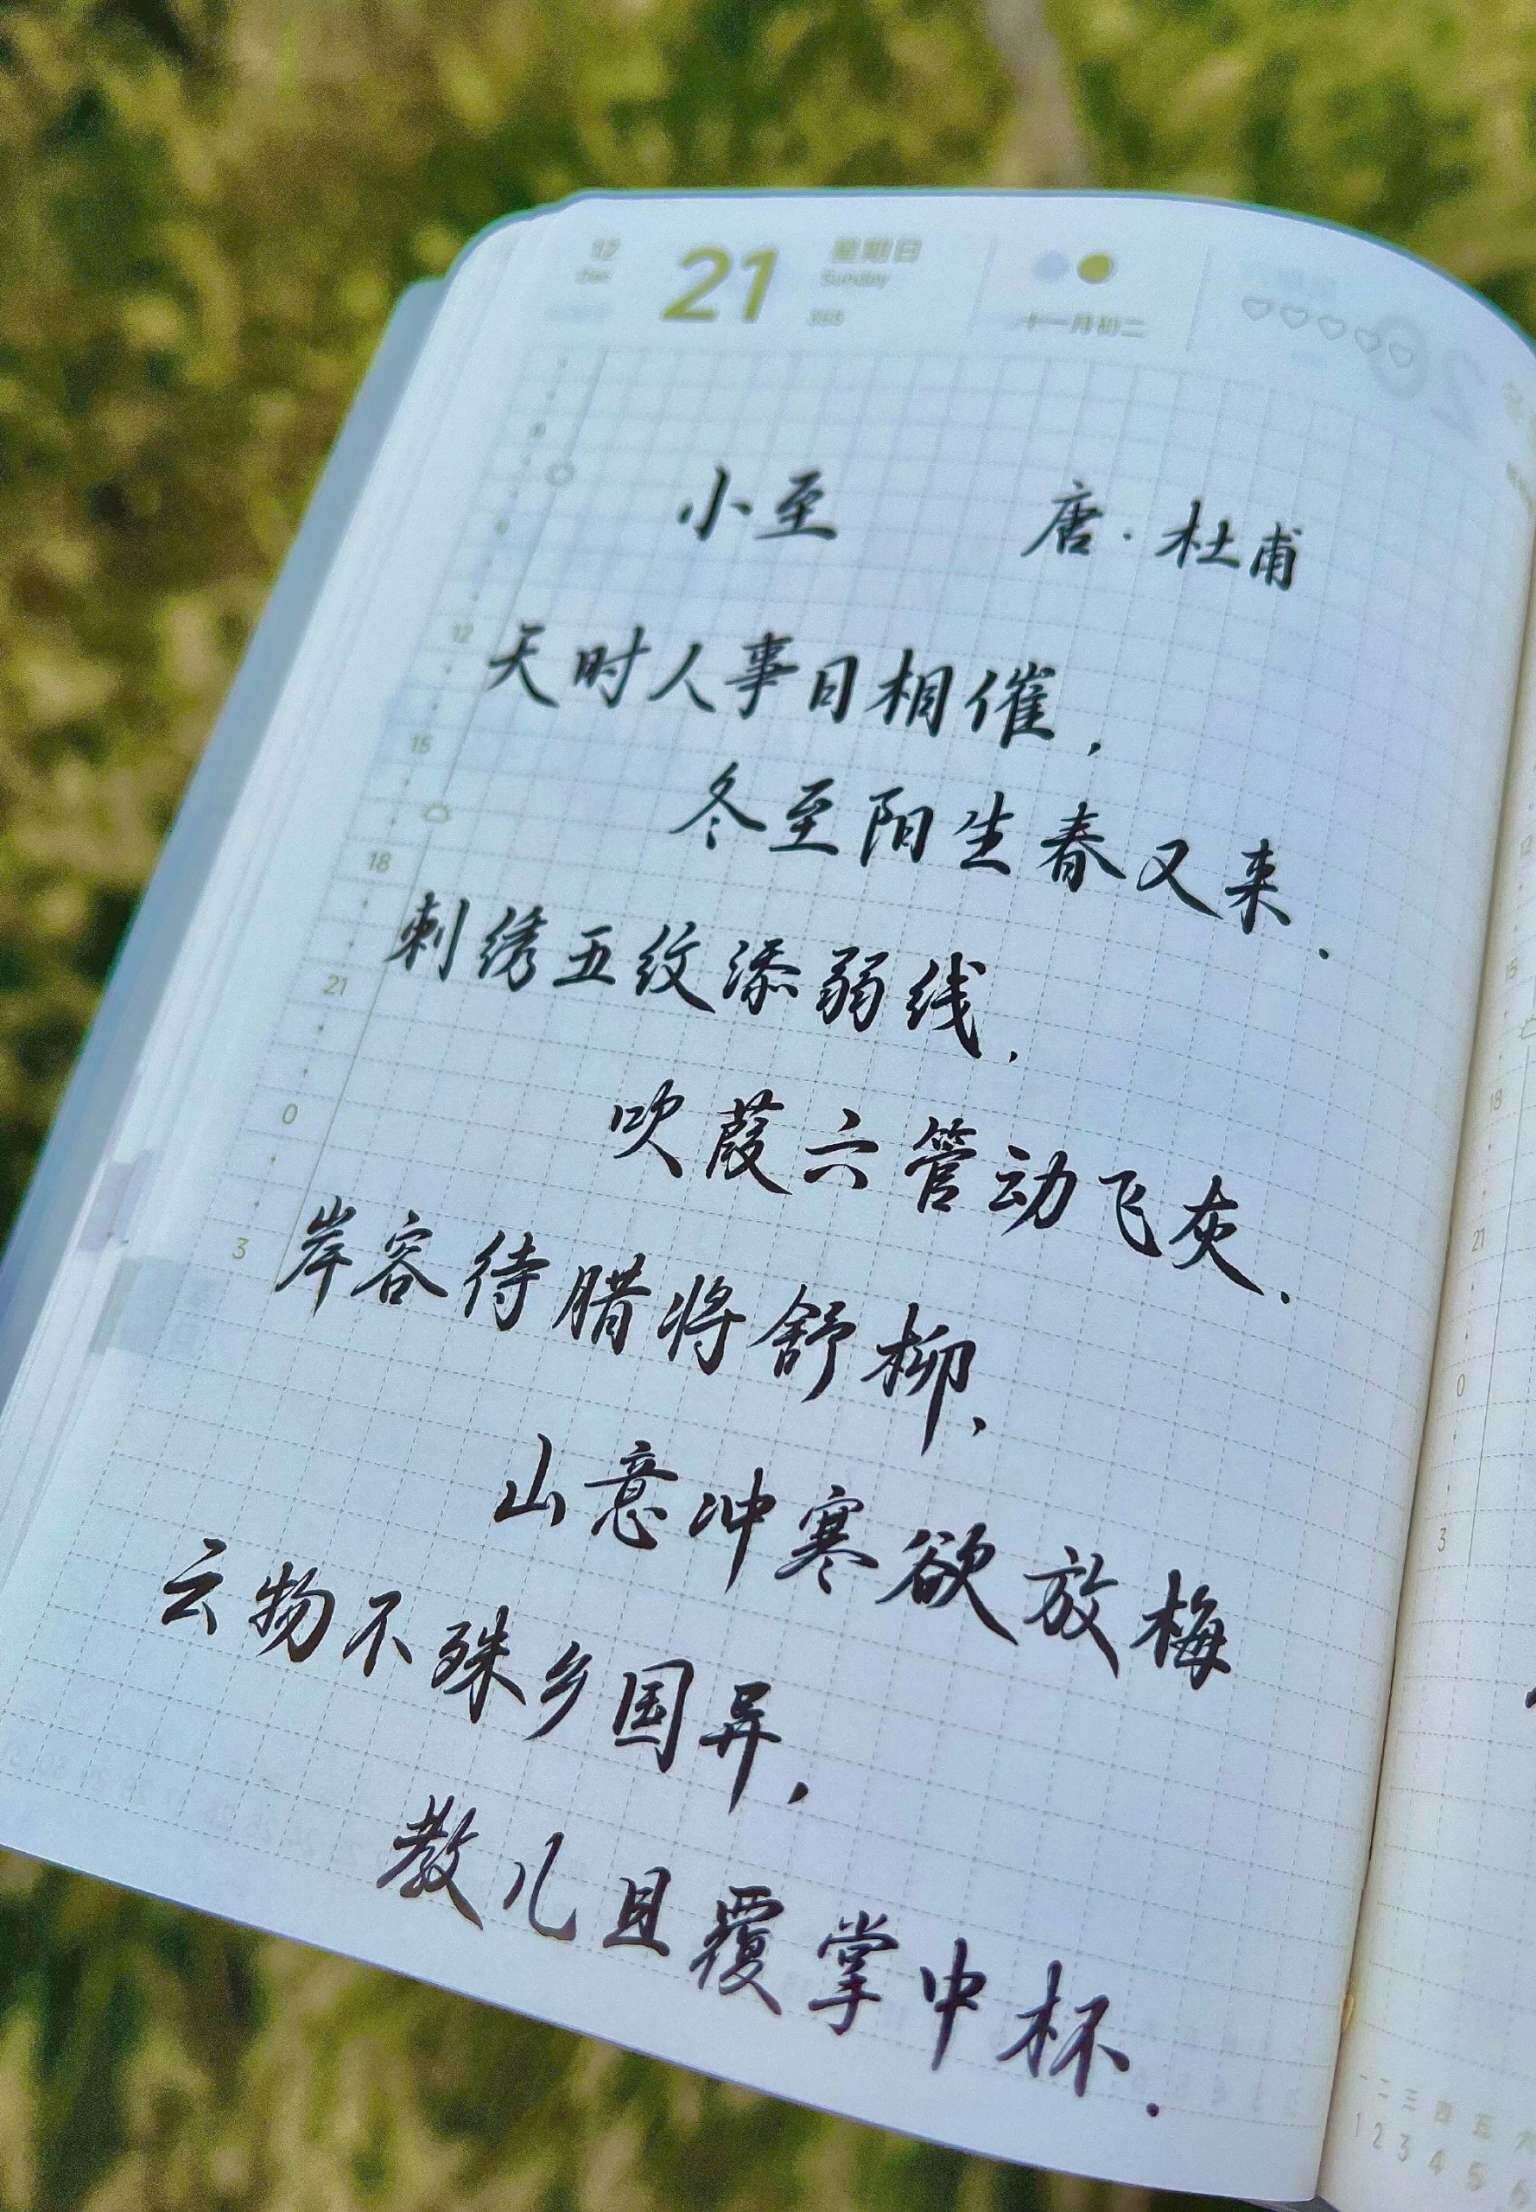 12
21
星期日
Sunday
355
十一月初二
小至 唐·杜甫
天时人事日相催，
冬至阳生春又来.
刺绣五纹添弱线，
吹葭六管动飞灰.
岸容待腊将舒柳，
山意冲寒欲放梅
云物不殊乡国异，
教儿且覆掌中杯.
12
15
18
21
0
3
15
18
21
0
3
一 二 三 四 五
1 2 3 4 5 6